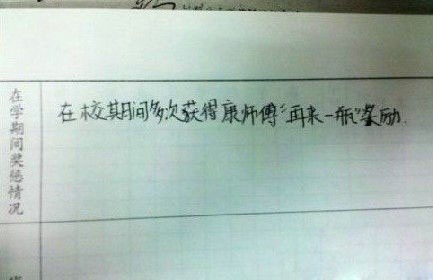 在学期间奖惩情况
在校期间多次获得康师傅“再来一瓶”奖励.